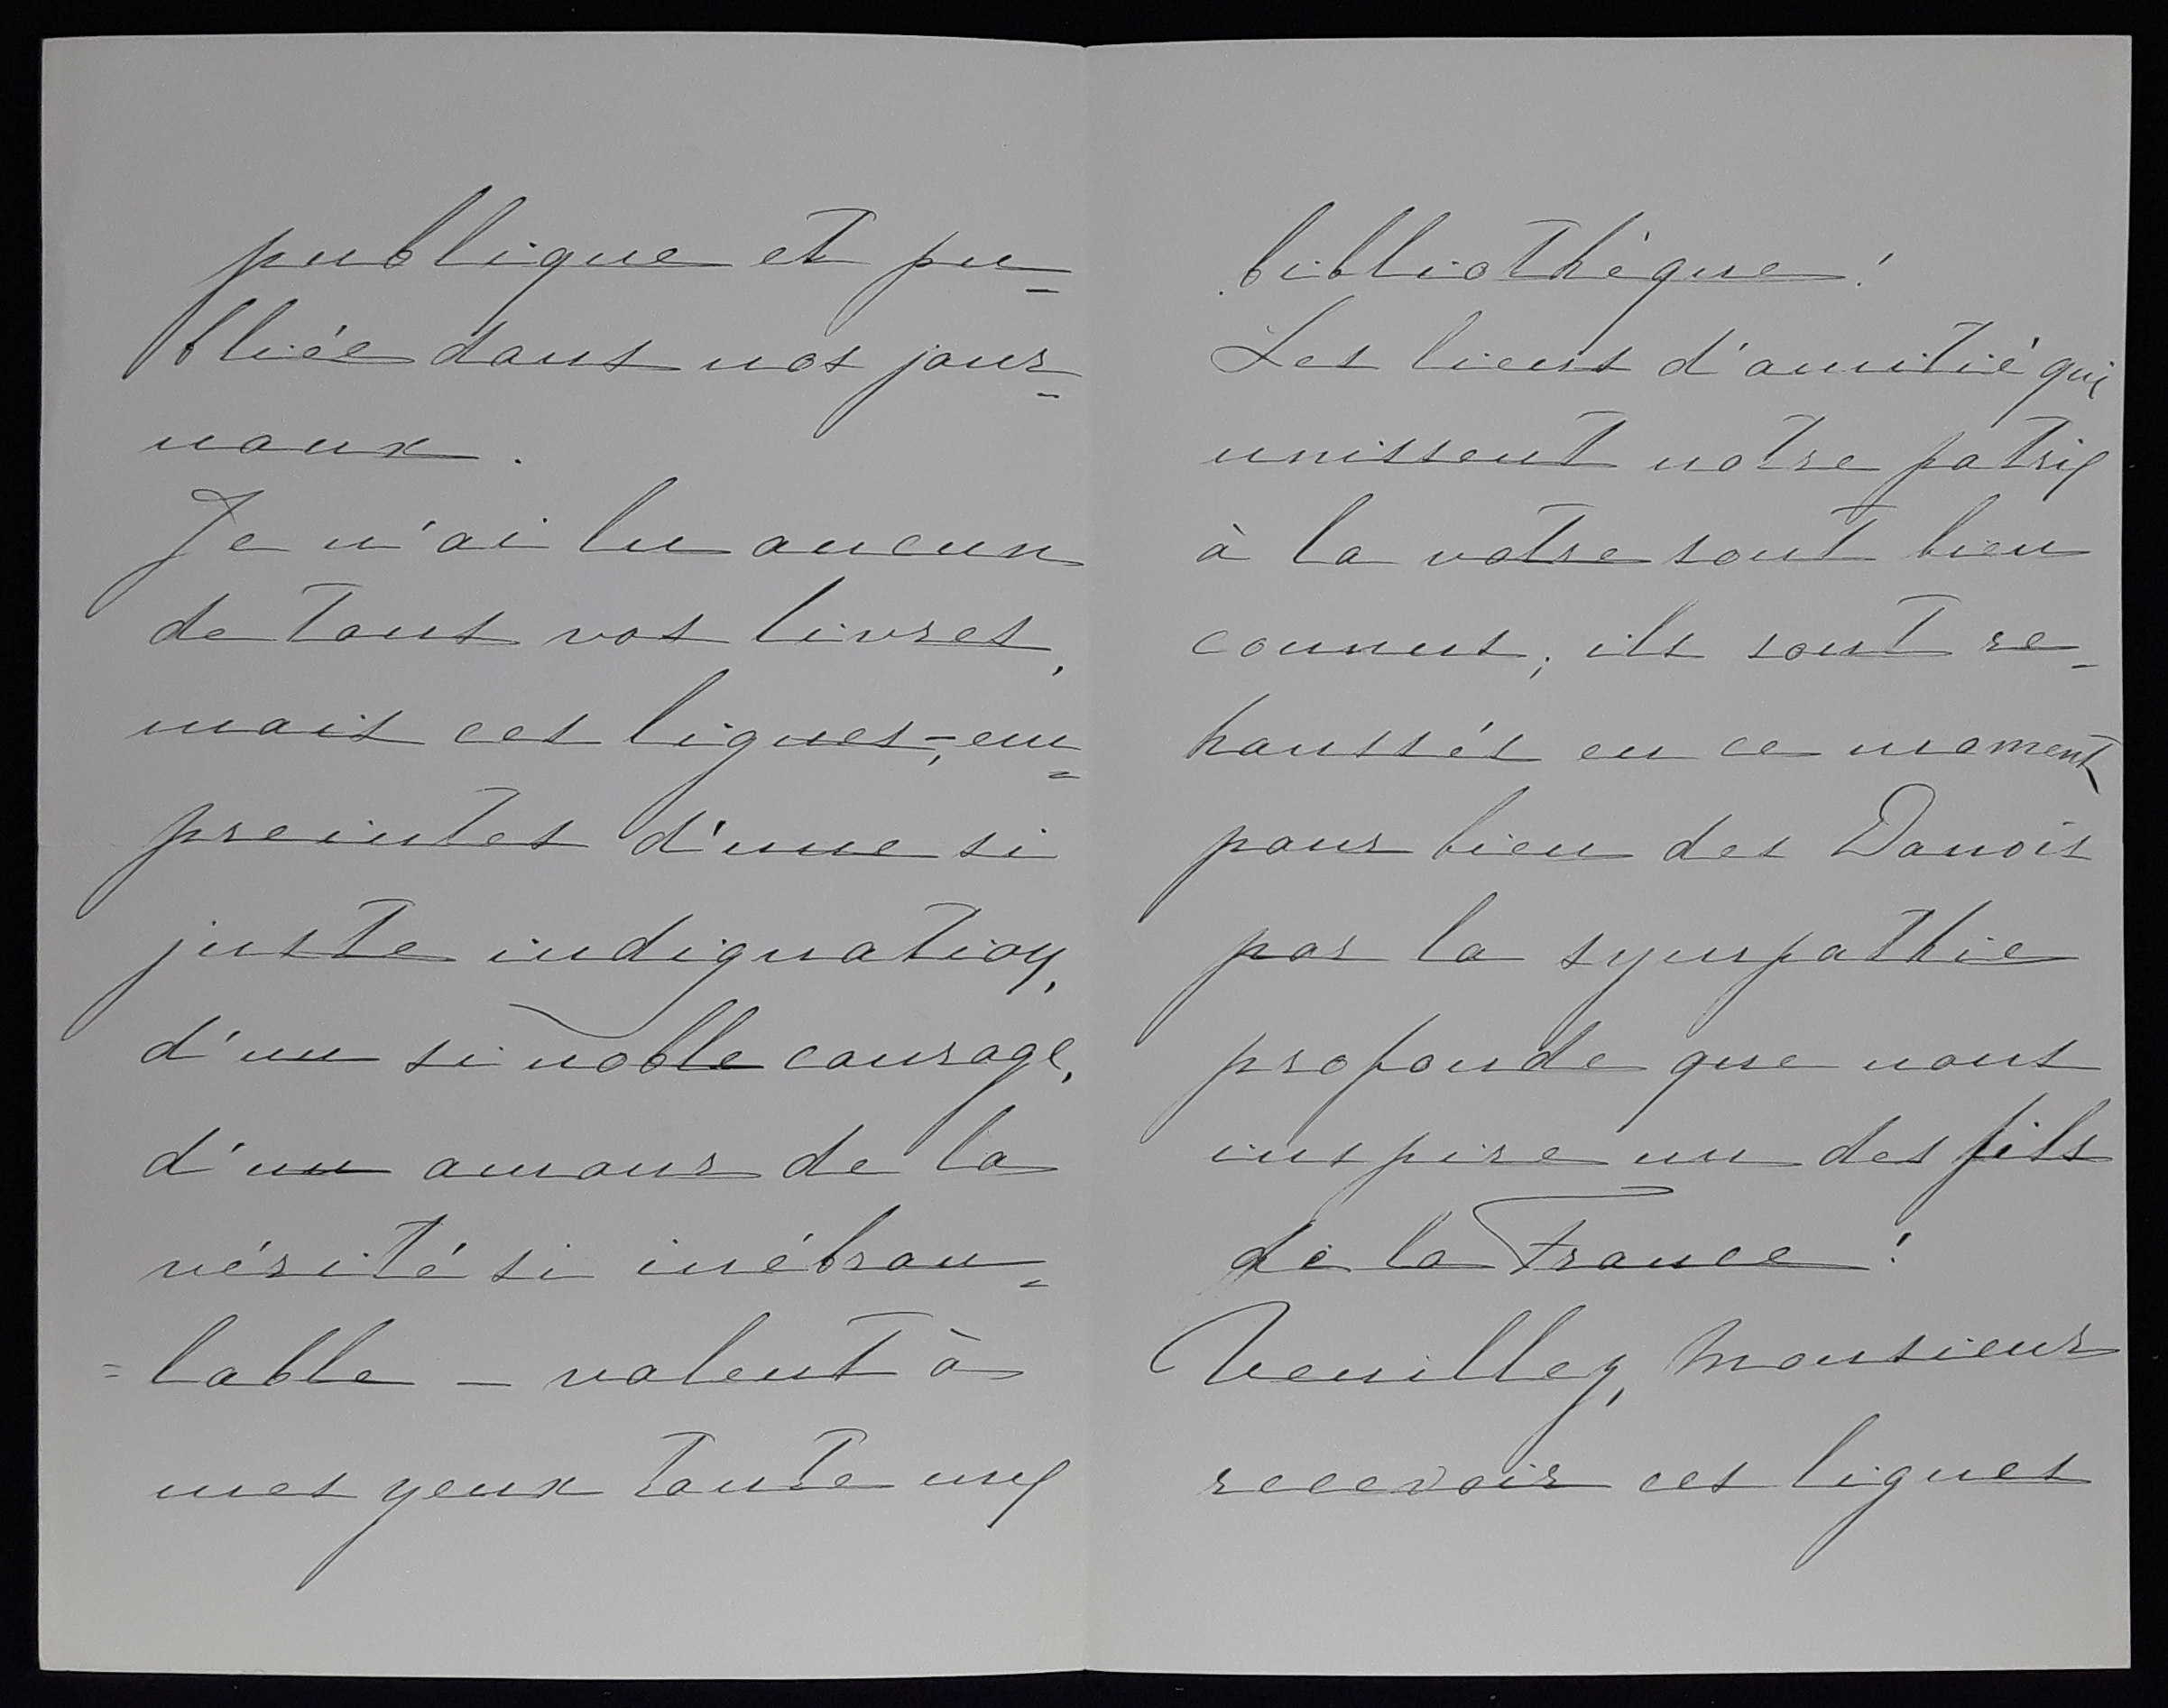 publique et pu-
bliée dans nos jour-
naux.
Je n'ai lu aucun
de tous vos livres,
mais ces lignes, em=
preintes d'une si
juste indignation,
d'un si noble courage,
d'un amour de la
vérité si inébran=
=lable — valent à
mes yeux toute une
bibliothèque!
Les liens d'amitié qui
unissent notre patrie
à la votre sont bien
connus; ils sont re-
haussés en ce moment
pour bien des Danois
par la sympathie
profonde que nous
inspire un des fils
de la France!
Veuillez, Monsieur
recevoir ces lignes